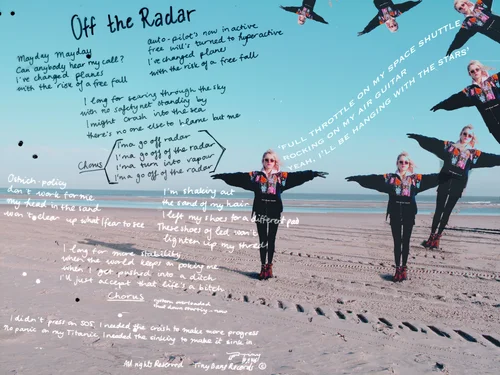 Off the Radar
Mayday Mayday
Can anybody hear my call?
I've changed planes
with the risk of a free fall
auto-pilot's now inactive
free will's turned to hyperactive
I've changed planes
with the risk of a free fall
I long for tearing through the sky
with no safetynet standing by
I might crash into the sea
there's no one else to blame but me
Chorus
I'ma go off radar
I'ma go off of the radar
I'ma turn into vapour
I'ma go off of the radar
"FULL THROTTLE ON MY SPACE SHUTTLE
ROCKING ON MY AIR GUITAR
YEAH, I'LL BE HANGING WITH THE STARS"
Ostrich-policy
don't work for me
my head in the sand
won't clear up what I fear to see
I'm shaking out
the sand of my hair
I left my shoes for a different pair
These shoes of led won't
lighten up my thread
I long for more stability
when the world keeps on poking me
when I get pushed into a ditch
I'd just accept that life's a bitch
Chorus
system overloaded
I didn't press on SOS, I needed the crash to make more progress
No panic on my Titanic, I needed the sinking to make it sink in
All rights Reserved Tiny Bang Records ©